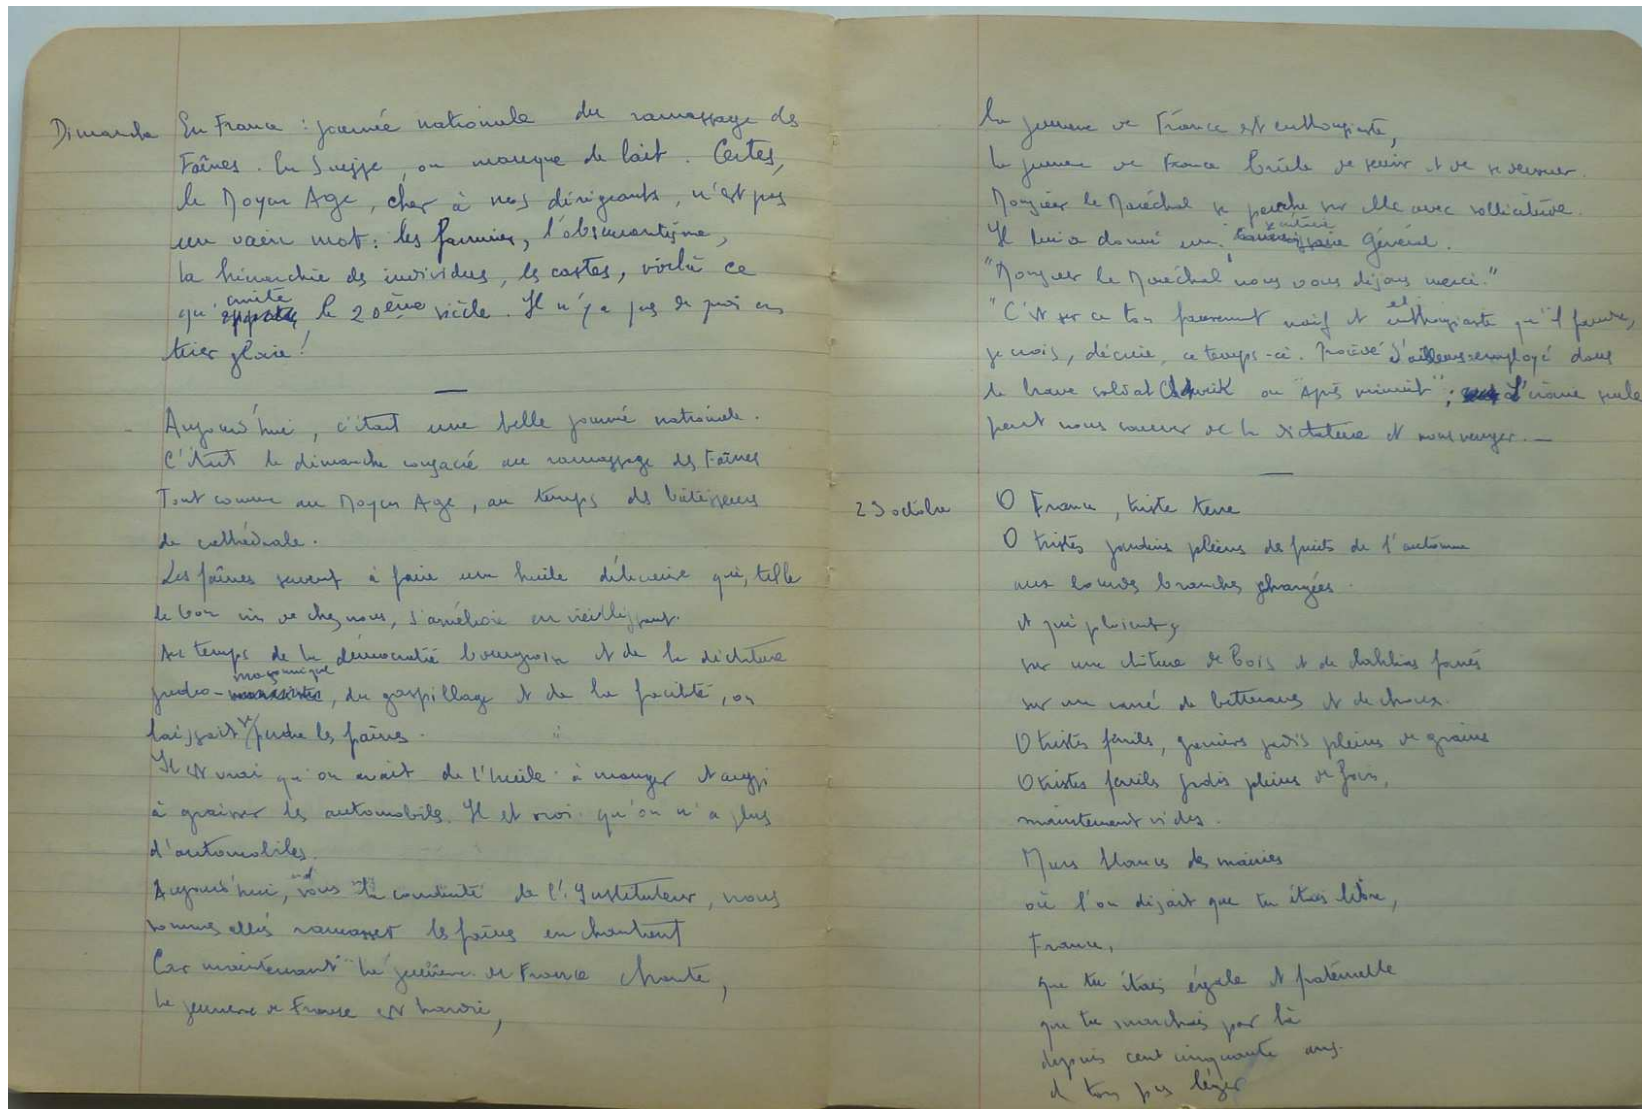 Dimanche En France : journée nationale du ramassage des
Faînes. En Suisse, on manque de lait. Certes,
le Moyen Age, cher à nos dirigeants, n'est pas
un vain mot : les famines, l'obscurantisme,
la hiérarchie des individus, les castes, voilà ce
qu'imite le 20ème siècle. Il n'y a pas de quoi en
tirer gloire !
Aujourd'hui, c'était une belle journée nationale.
C'était le dimanche consacré au ramassage des Faînes
Tout comme au Moyen Age, au temps des bâtisseurs
de cathédrale.
Les faînes servent à faire une huile délicieuse qui, telle
le bon vin de chez nous, s'améliore en vieillissant.
Au temps de la démocratie bourgeoise et de la dictature
judéo-maçonnique, du gaspillage et de la facilité, on
laissait se perdre les faînes.
Il est vrai qu'on avait de l'huile à manger et aussi
à graisser les automobiles. Il est vrai qu'on n'a plus
d'automobiles.
Aujourd'hui, sous la conduite de l'Instituteur, nous
sommes allés ramasser les faînes en chantant
Car maintenant la jeunesse de France chante,
la jeunesse de France est hardie,
la jeunesse de France est enthousiaste,
la jeunesse de France brûle de servir et de se dévouer.
Monsieur le Maréchal se penche sur elle avec sollicitude.
Il lui a donné un Général.
"Monsieur le Maréchal nous vous disons merci."
"C'est sur ce ton faussement naïf et enthousiaste qu'il faudra,
je crois, décrire ce temps-ci. Procédé d'ailleurs employé dans
le brave soldat Chveik ou "Après minuit" ; L'ironie seule
peut nous sauver de la dictature et nous venger.—
23 octobre O France, triste terre
O tristes jardins pleins des fruits de l'automne
aux lourdes branches chargées
et qui ploient,
sur une clôture de bois et de dahlias fanés
sur un carré de betteraves et de choux.
O tristes fenils, greniers jadis pleins de grains
O tristes fenils jadis pleins de foin,
maintenant vides.
Murs blancs des mairies
où l'on disait que tu étais libre,
France,
que tu étais égale et fraternelle
que tu marchais par là
depuis cent cinquante ans.
d ton pas léger